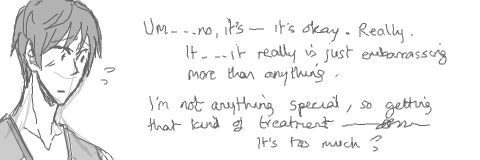 Um---no, it's— it's okay. Really.
It---it really is just embarrassing
more than anything.
I'm not anything special, so getting
that kind of treatment
It's too much?